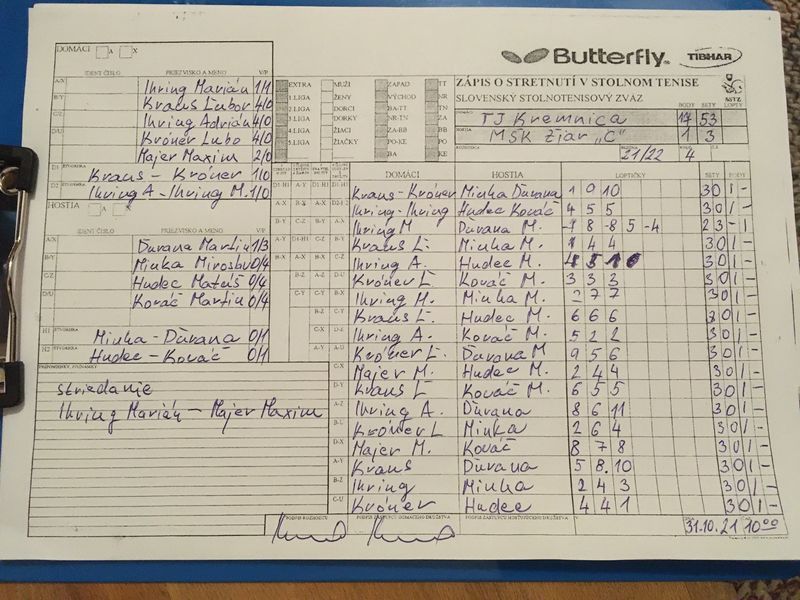 DOMÁCI A X
Butterfly TIBHAR
IDENT. ČÍSLO PRIEZVISKO A MENO V/P
A/X Ihring Marián 1/1
B/Y Kraus Ľubor 4/0
C/Z Ihring Adrián 4/0
D/U Króner Ľubo 4/0
Majer Maxim 2/0
D1 ŠTVORHRA Kraus - Króner 1/0
D2 ŠTVORHRA Ihring A. - Ihring M. 1/0
HOSTIA A X
IDENT. ČÍSLO PRIEZVISKO A MENO V/P
A/X Ďurana Martin 1/3
B/Y Minka Miroslav 0/4
C/Z Hudec Matúš 0/4
D/U Kováč Martin 0/4
H1 ŠTVORHRA Minka - Ďurana 0/1
H2 ŠTVORHRA Hudec - Kováč 0/1
PRIPOMIENKY, POZNÁMKY
striedanie
Ihring Marián - Majer Maxim
EXTRA MUŽI ZÁPAD TT
1.LIGA ŽENY VÝCHOD NR
2.LIGA DORCI BA-TT TN
3.LIGA DORKY NR-TN ZA
4.LIGA ŽIACI ZA-BB BB
5.LIGA ŽIAČKY PO-KE PO
BA KE
ZÁPIS O STRETNUTÍ V STOLNOM TENISE
SLOVENSKÝ STOLNOTENISOVÝ ZVÄZ
SSTZ
BODY SETY LOPTY
DOMÁCI TJ Kremnica 17 53
HOSTIA MSK Žiar "C" 1 3
21/22 4
DOMÁCI HOSTIA LOPTIČKY SETY BODY
Kraus - Króner Minka Ďurana 1 9 10 3 0 1 -
Ihring - Ihring Hudec Kováč 4 5 5 3 0 1 -
Ihring M Ďurana M. -8 -8 5 -4 2 3 - 1
Kraus Ľ. Minka M. 1 4 4 3 0 1 -
Ihring A. Hudec M. 3 0 1 -
Króner Ľ Kováč M. 3 3 3 3 0 1 -
Ihring M. Minka M. 2 7 7 3 0 1 -
Kraus Ľ. Hudec M. 6 6 6 3 0 1 -
Ihring A. Kováč M. 5 2 2 3 0 1 -
Króner Ľ. Ďurana M 9 5 6 3 0 1 -
Majer M. Hudec M. 2 4 4 3 0 1 -
Kraus Ľ Kováč M. 6 5 5 3 0 1 -
Ihring A. Ďurana 8 6 11 3 0 1 -
Króner Ľ. Minka 2 6 4 3 0 1 -
Majer M. Kováč 8 7 8 3 0 1 -
Kraus Ďurana 5 8 10 3 0 1 -
Ihring Minka 2 4 3 3 0 1 -
Króner Hudec 4 4 1 3 0 1 -
PODPIS ROZHODCU PODPIS ZÁSTUPCU DOMÁCEHO DRUŽSTVA PODPIS ZÁSTUPCU HOSŤUJÚCEHO DRUŽSTVA
31.10.21 10:00